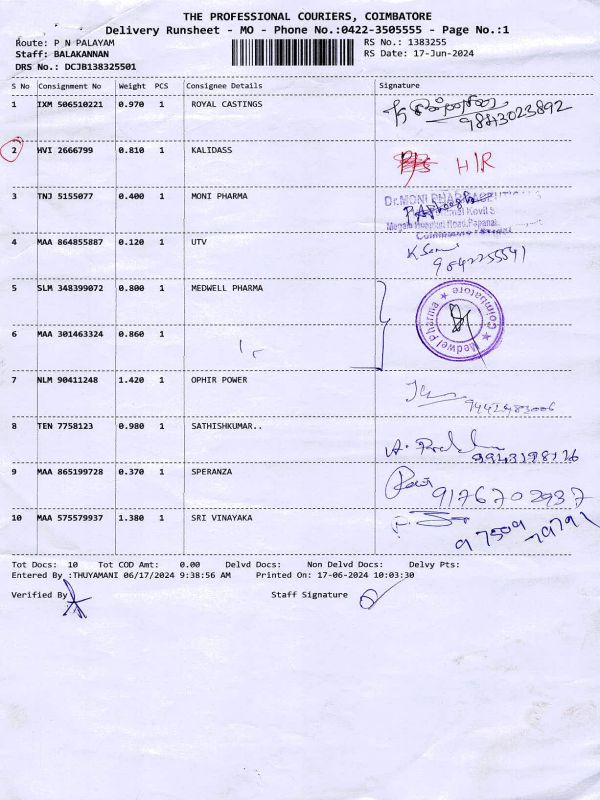 THE PROFESSIONAL COURIERS, COIMBATORE
Delivery Runsheet - MO - Phone No.:0422-3505555 - Page No.:1
Route: P N PALAYAM RS No.: 1383255
Staff: BALAKANNAN RS Date: 17-Jun-2024
DRS No.: DCJB138325501
S No Consignment No Weight PCS Consignee Details Signature
1 IXM 506510221 0.970 1 ROYAL CASTINGS
9843023892
2 HVI 2666799 0.810 1 KALIDASS H/R
3 TNJ 5155077 0.400 1 MONI PHARMA
Dr.MONI PHARMACEUTICALS
4 MAA 864855887 0.120 1 UTV
9842255541
5 SLM 348399072 0.800 1 MEDWELL PHARMA
Medwel Pharma ★ Coimbatore ★
6 MAA 301463324 0.860 1
7 NLM 90411248 1.420 1 OPHIR POWER
9442483006
8 TEN 7758123 0.980 1 SATHISHKUMAR..
9943198126
9 MAA 865199728 0.370 1 SPERANZA
9176702937
10 MAA 575579937 1.380 1 SRI VINAYAKA
97509 79791
Tot Docs: 10 Tot COD Amt: 0.00 Delvd Docs: Non Delvd Docs: Delvy Pts:
Entered By :THUYAMANI 06/17/2024 9:38:56 AM Printed On: 17-06-2024 10:03:30
Verified By Staff Signature